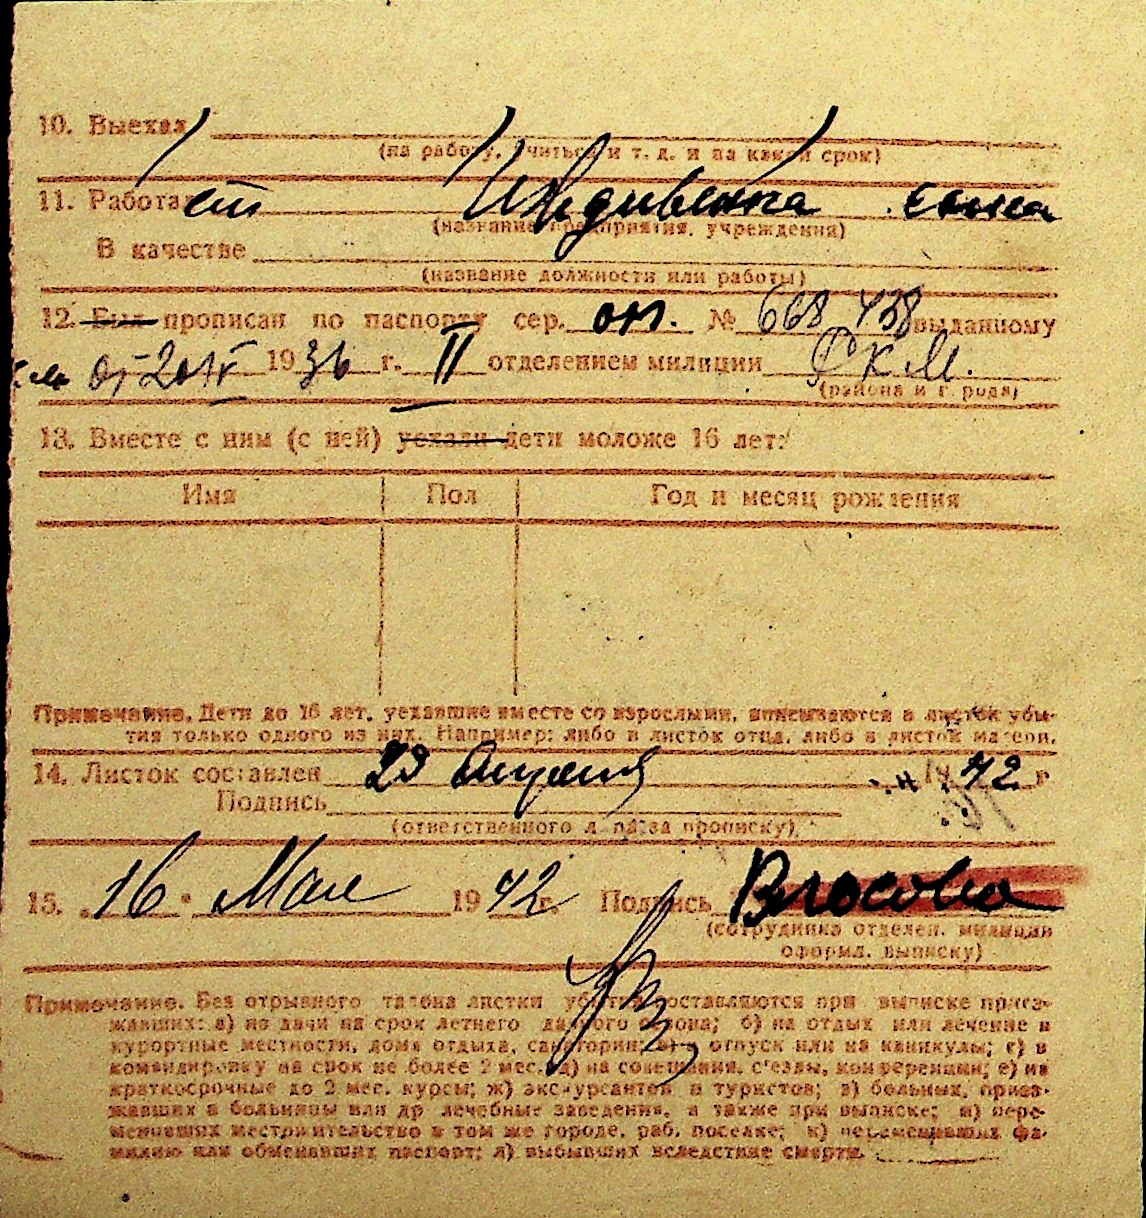 10. Выехал
(на работу, учиться и т. д. и на какой срок)
11. Работает Иждивенка сына
(название предприятия, учреждения)
В качестве
(название должности или работы)
12. Был прописан по паспорту сер. № 668438 выданному
от 20/IV 1936 г. II отделением милиции Р.К.М.
(района и города)
13. Вместе с ним (с ней) уехали дети моложе 16 лет:
Имя Пол Год и месяц рождения
Примечание. Дети до 16 лет, уехавшие вместе со взрослыми, вписываются в листок убы-
тия только одного из них. Например: либо в листок отца, либо в листок матери.
14. Листок составлен 29 Апреля 1942 г
Подпись
(ответственного л. за прописку)
15. „16" Мая 1942 г. Подпись Власова
(сотрудника отделен. милиции
оформл. выписку)
Примечание. Без отрывного талона листки убытия составляются при выписке приез-
жавших: а) на дачи на срок летнего дачного сезона; б) на отдых или лечение в
курортные местности, дома отдыха, санатории; в) в отпуск или на каникулы; г) в
командировку на срок не более 2 мес. д) на совещания, с'езды, конференции; е) на
краткосрочные до 2 мес. курсы; ж) экскурсантов и туристов; з) больных, приез-
жавших в больницы или др лечебные заведения, а также при выписке; и) пере-
менивших местожительство в том же городе, раб. поселке; к) переменивших фа-
милию или обменявших паспорт; л) выбывших вследствие смерти.